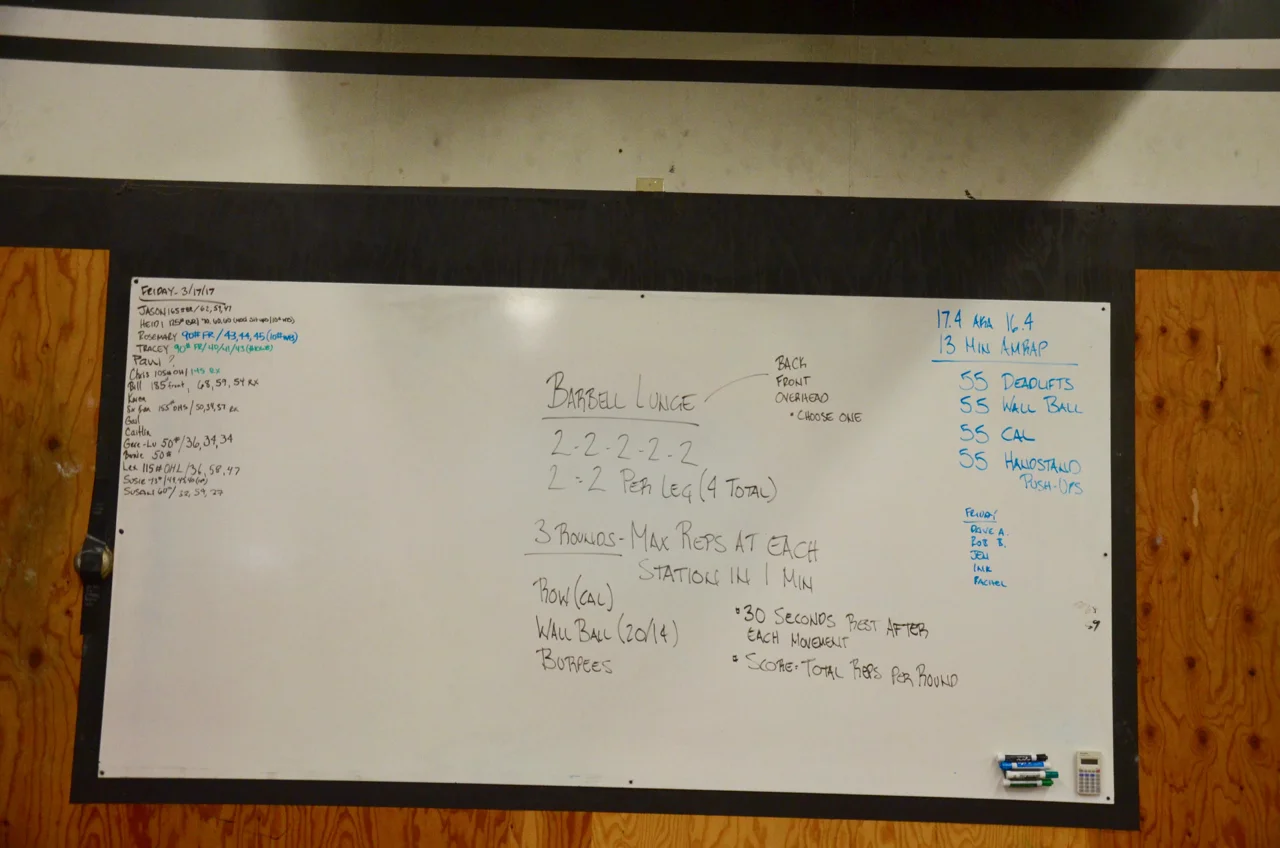 FRIDAY - 3/17/17
JASON 165# BR / 62, 59, 47
HEIDI 125#
ROSEMARY 90# FR / 43, 44, 45 (10# WB)
TRACEY 90# FR / 40/41/43
Paul ?
Chris 105# OH / 145 RX
Bill 185 front, 68, 59, 54 RX
Karen
155# OHS / 50, 59, 57 RX
Gail
Caitlin
Gere-Lu 50# / 36, 34, 34
50#
Lex 115# OHL / 36, 58, 47
SUSIE
SUSAN 60# / 59, 27
BARBELL LUNGE
BACK
FRONT
OVERHEAD
• CHOOSE ONE
2-2-2-2-2
2 = 2 PER LEG (4 TOTAL)
3 ROUNDS - MAX REPS AT EACH
STATION IN 1 MIN
ROW (CAL)
WALL BALL (20/14)
BURPEES
• 30 SECONDS REST AFTER
EACH MOVEMENT
• SCORE = TOTAL REPS PER ROUND
17.4 AKA 16.4
13 MIN AMRAP
55 DEADLIFTS
55 WALL BALL
55 CAL
55 HANDSTAND
PUSH-UPS
FRIDAY
DAVE A.
ROB B.
JEN
INK
RACHEL